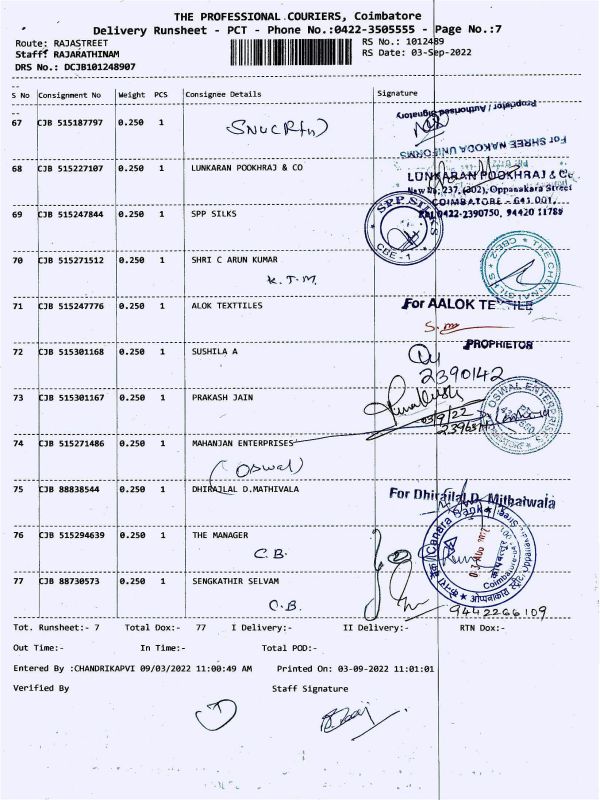 THE PROFESSIONAL COURIERS, Coimbatore
Delivery Runsheet - PCT - Phone No.:0422-3505555 - Page No.:7
Route: RAJASTREET RS No.: 1012489
Staff: RAJARATHINAM RS Date: 03-Sep-2022
DRS No.: DCJB101248907
S No Consignment No Weight PCS Consignee Details Signature
Proprietor / Authorised Signatory
67 CJB 515187797 0.250 1
For SHREE NAKODA UNIFORMS
68 CJB 515227107 0.250 1 LUNKARAN POOKHRAJ & CO
LUNKARAN POOKHRAJ & Co
New No. 237, (202), Oppanakara Street
COIMBATORE - 641 001.
0422-2390750, 94420 11789
69 CJB 515247844 0.250 1 SPP SILKS
SPP SILKS
CBE - 1
70 CJB 515271512 0.250 1 SHRI C ARUN KUMAR
K.T.M.
THE CHENNAI SILKS
CBE-2
71 CJB 515247776 1 0.250 1 ALOK TEXTTILES
For AALOK TEXTILE
PROPRIETOR
72 CJB 515301168 0.250 1 SUSHILA A
2390142
73 CJB 515301167 0.250 1 PRAKASH JAIN
03/9/22
OSWAL ENTERPRISES
74 CJB 515271486 0.250 1 MAHANJAN ENTERPRISES
(Oswal)
75 CJB 88838544 0.250 1 DHIRAJLAL D.MATHIVALA
For Dhirajlal D. Mithaiwala
76 CJB 515294639 0.250 1 THE MANAGER
C.B.
Canara Bank
77 CJB 88730573 0.250 1 SENGKATHIR SELVAM
C.B.
9442266109
Tot. Runsheet:- 7 Total Dox:- 77 I Delivery:- II Delivery:- RTN Dox:-
Out Time:- In Time:- Total POD:-
Entered By :CHANDRIKAPVI 09/03/2022 11:00:49 AM Printed On: 03-09-2022 11:01:01
Verified By Staff Signature